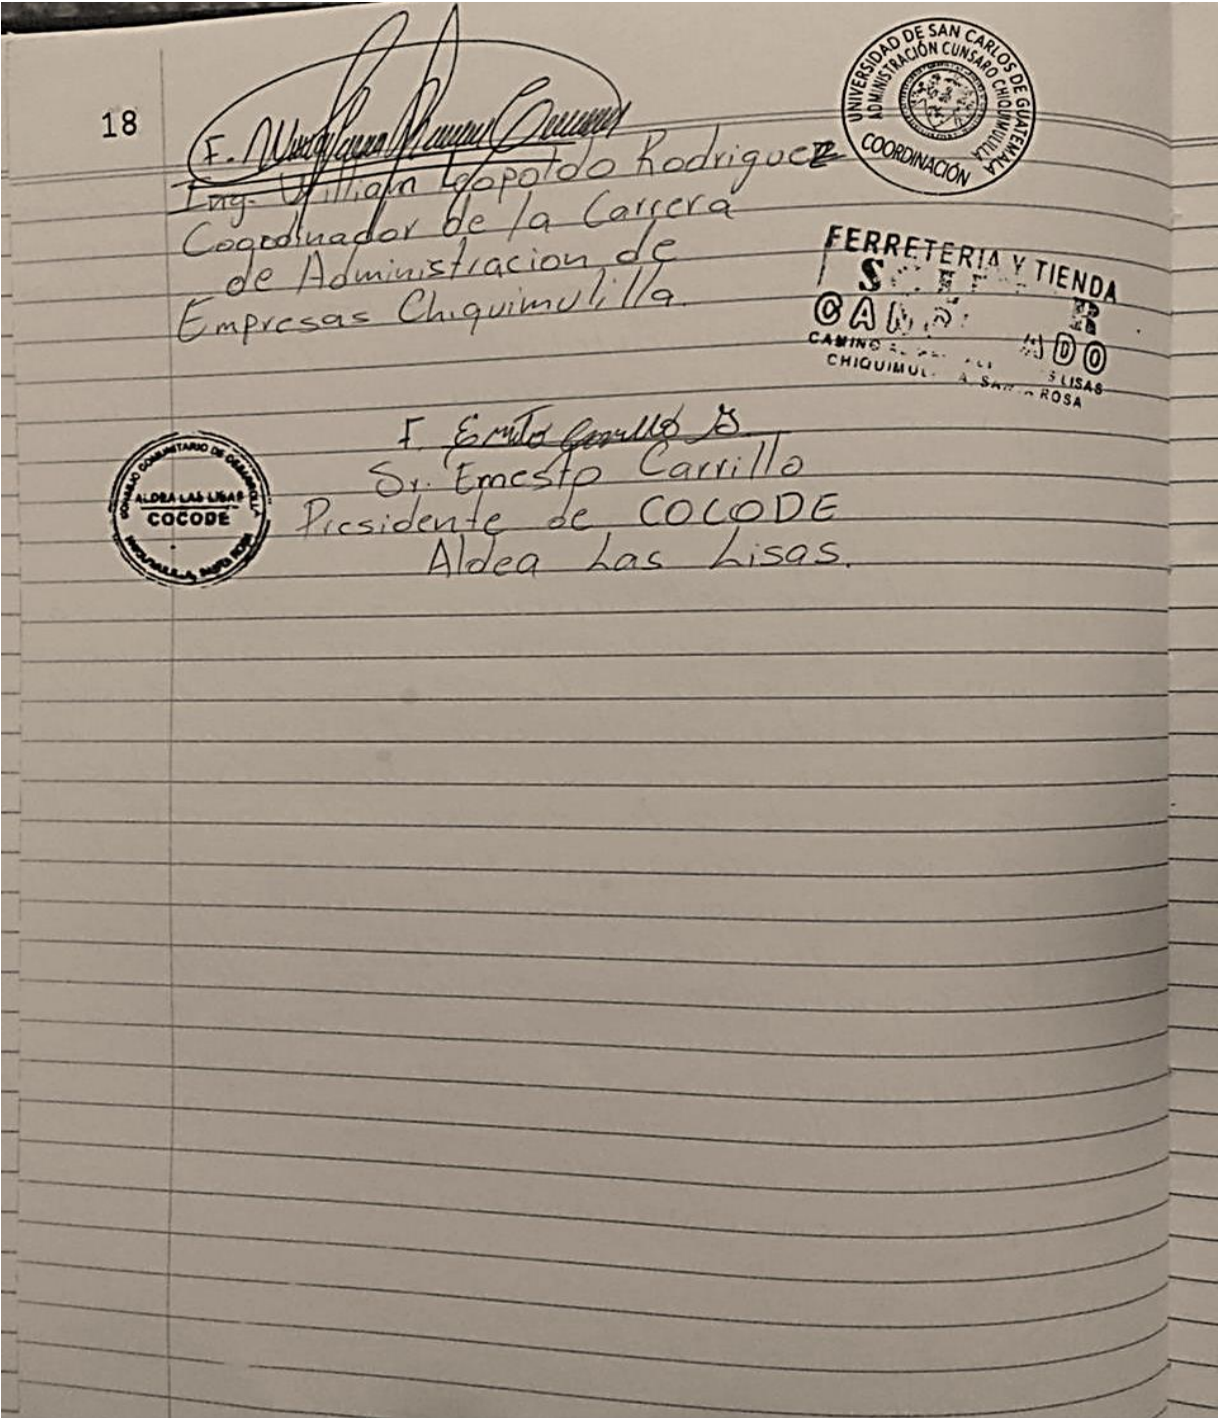 18
F.
Ing. William Leopoldo Rodriguez
Coordinador de la Carrera
de Administracion de
Empresas Chiquimulilla.
UNIVERSIDAD DE SAN CARLOS DE GUATEMALA
ADMINISTRACIÓN CUNSARO CHIQUIMULILLA
COORDINACIÓN
FERRETERIA Y TIENDA
CAMINO
LISAS
CHIQUIMUL A, SANTA ROSA
F. Carrillo G
Sr. Ernesto Carrillo
Presidente de COCODE
Aldea Las Lisas.
CONSEJO COMUNITARIO DE DESARROLLO
ALDEA LAS LISAS
COCODE
SANTA ROSA